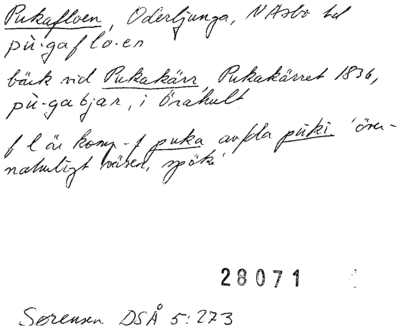 Pukafloen, Oderljunga, N Åsbo hd
pù·gaflo·en
bäck vid Pukakärr, Pukakärret 1836,
pù·gabjar, i Örahult
f l är komp.-f puka, av fda puki 'över-
naturligt väsen, spök'
28071
Sørensen DSÅ 5:273